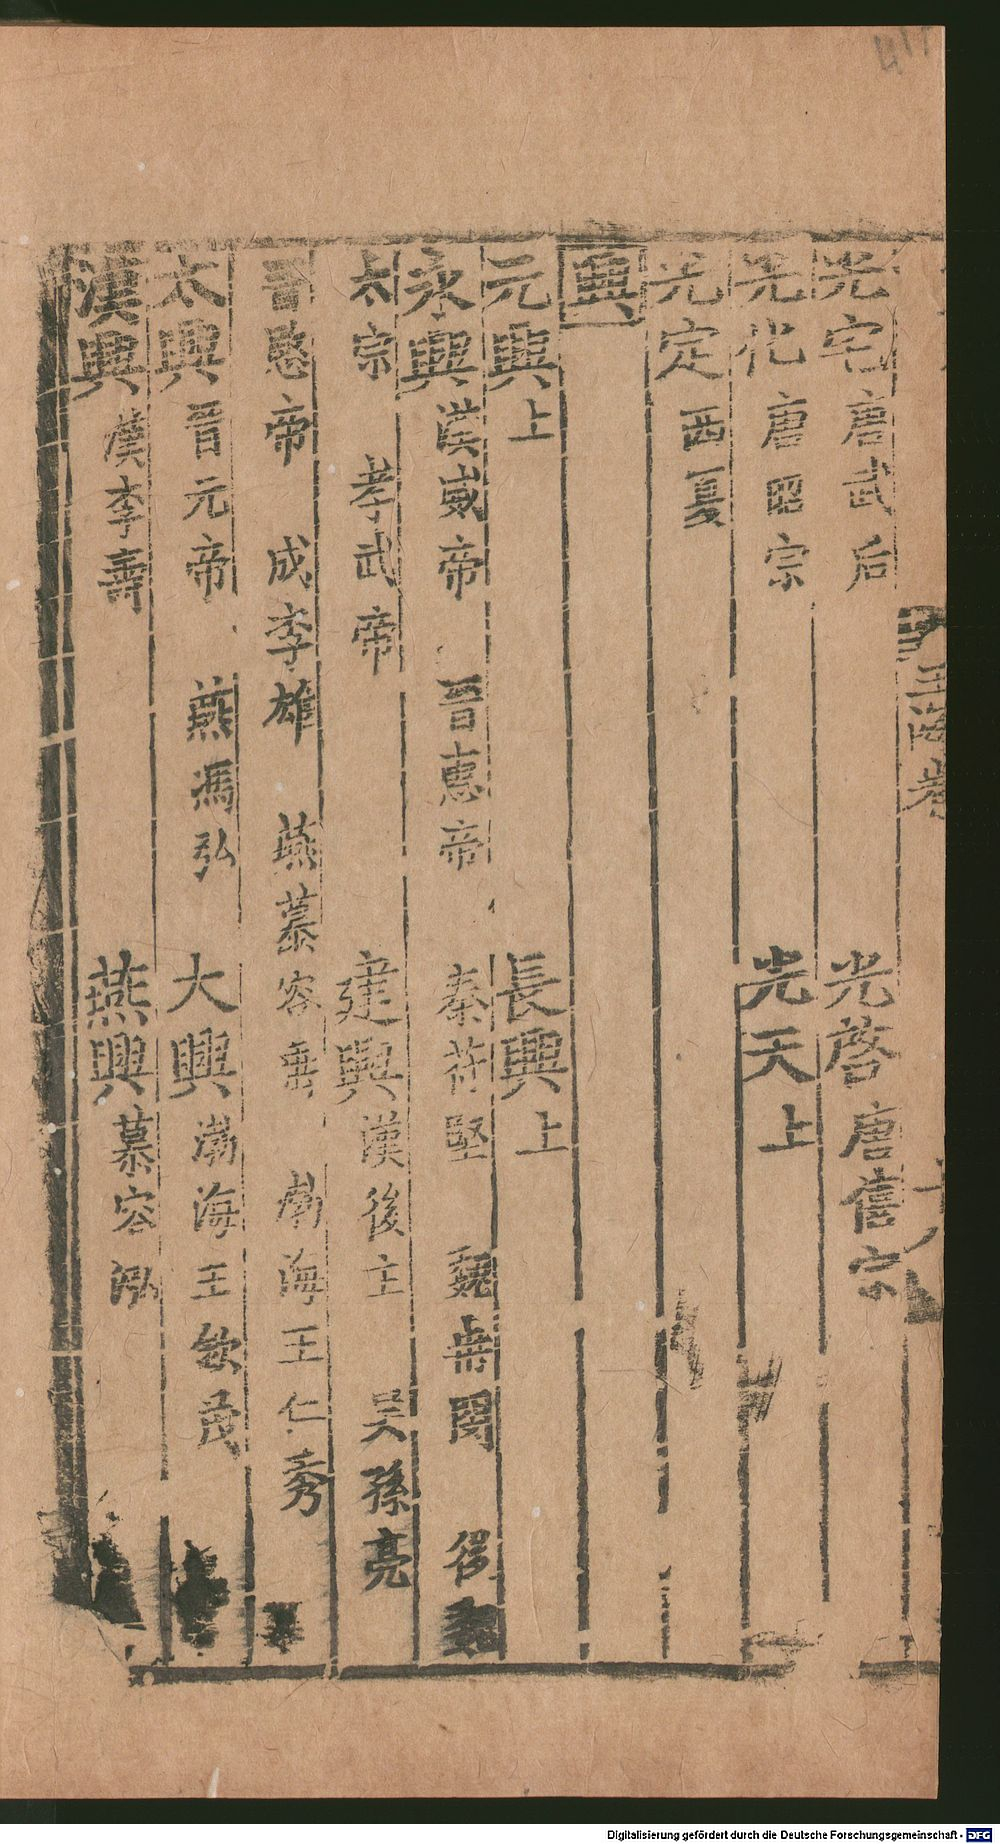 光宅唐武后 光啓唐僖宗
光化唐昭宗 光天上
光定西夏
興
元興上 長興上
永興漢威帝 晉惠帝 秦苻堅 魏冉閔 後魏
太宗 孝武帝 建興漢後主 吴孫亮
晉愍帝 成李雄 燕慕容垂 渤海王仁秀
太興晉元帝 燕馮弘 大興渤海王欽茂
漢興漢李壽 燕興慕容泓
玉海卷
Digitalisierung gefördert durch die Deutsche Forschungsgemeinschaft - DFG